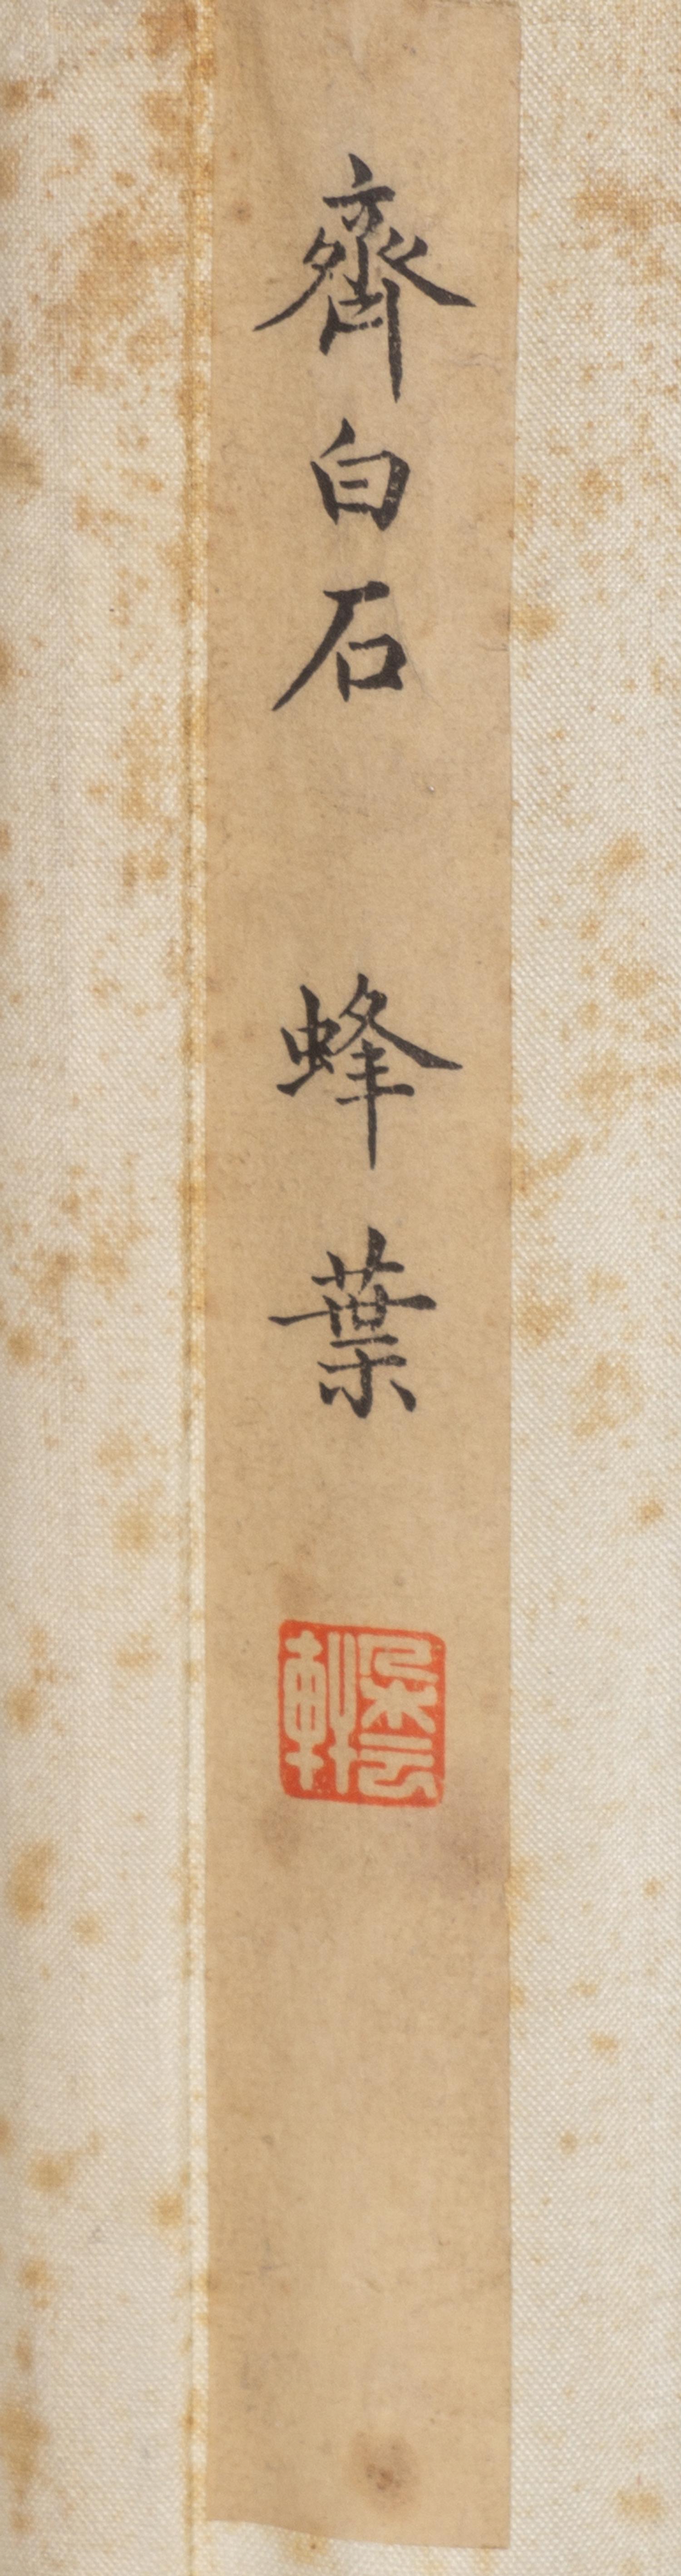 齊白石 蜂葉